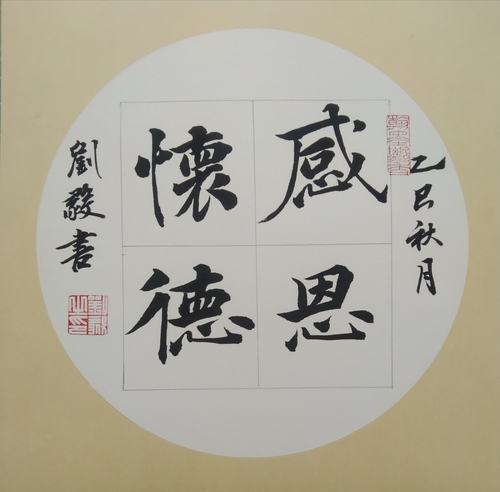 感恩
懷德
乙巳秋月
劉毅書